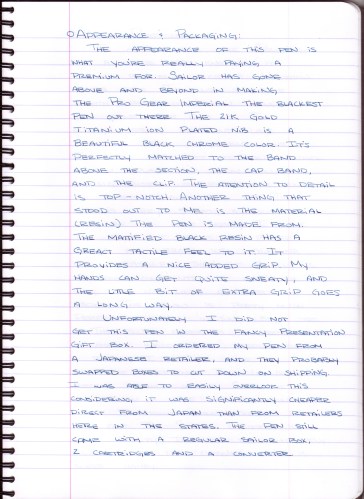 Appearance & Packaging:
The appearance of this pen is
what you're really paying a
premium for. Sailor has gone
above and beyond in making
the Pro Gear Imperial the blackest
pen out there. The 21K Gold
Titanium ion plated nib is a
beautiful black chrome color. It's
perfectly matched to the band
above the section, the cap band,
and the clip. The attention to detail
is top-notch. Another thing that
stood out to me is the material
(resin) the pen is made from.
The mattified black resin has a
great tactile feel to it. It
provides a nice added grip. My
hands can get quite sweaty, and
the little bit of extra grip goes
a long way.
Unfortunately I did not
get this pen in the fancy presentation
gift box. I ordered my pen from
a Japanese retailer, and they probably
swapped boxes to cut down on shipping.
I was able to easily overlook this
considering it was significantly cheaper
direct from Japan than from retailers
here in the states. The pen still
came with a regular Sailor box,
2 cartridges and a converter